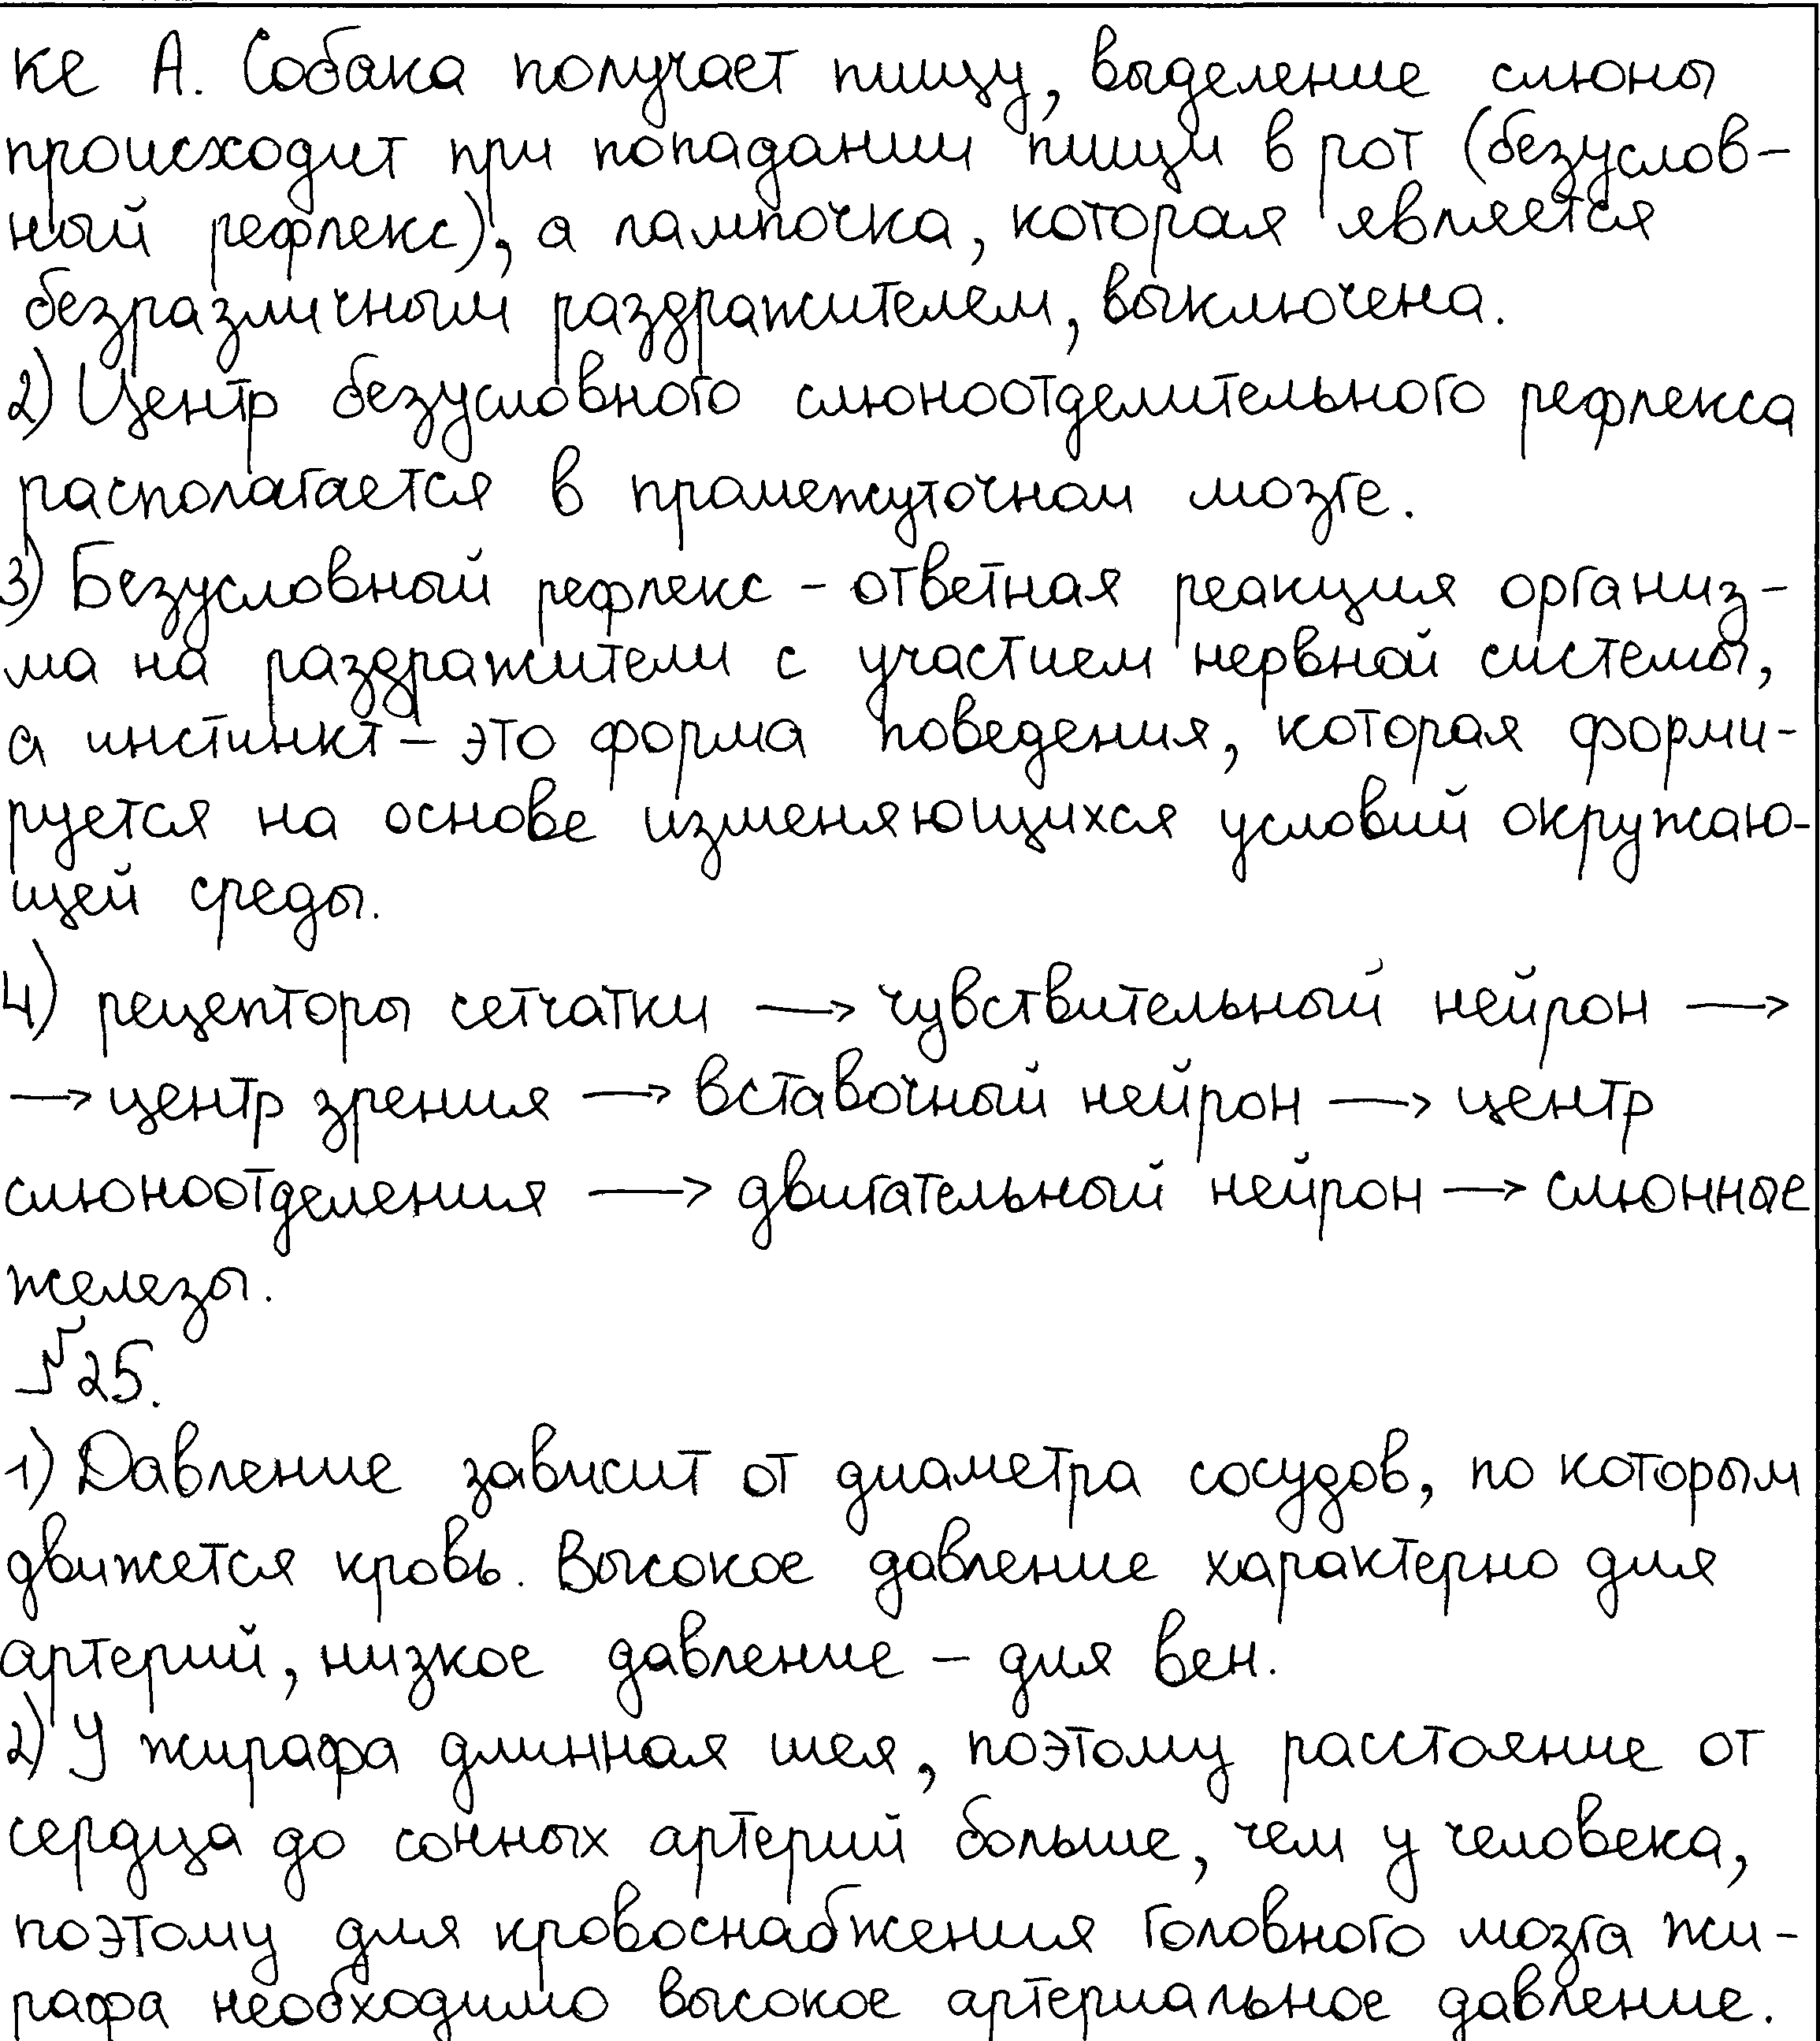 ке А. Собака получает пищу, выделение слюны
происходит при попадании пищи в рот (безуслов-
ный рефлекс), а лампочка, которая является
безразличным раздражителем, выключена.
2) Центр безусловного слюноотделительного рефлекса
располагается в промежуточном мозге.
3) Безусловный рефлекс - ответная реакция организ-
ма на раздражители с участием нервной системы,
а инстинкт - это форма поведения, которая форми-
руется на основе изменяющихся условий окружаю-
щей среды.
4) рецепторы сетчатки → чувствительный нейрон →
→ центр зрения → вставочный нейрон → центр
слюноотделения → двигательный нейрон → слюнные
железы.
№25.
1) Давление зависит от диаметра сосудов, по которым
движется кровь. Высокое давление характерно для
артерий, низкое давление - для вен.
2) У жирафа длинная шея, поэтому расстояние от
сердца до сонных артерий больше, чем у человека,
поэтому для кровоснабжения головного мозга жи-
рафа необходимо высокое артериальное давление.